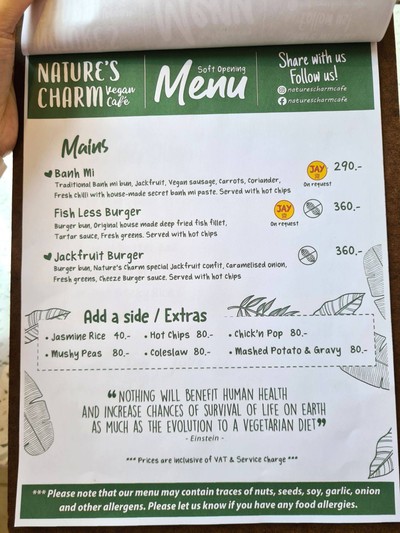 NATURE'S
CHARM Vegan Cafe
Soft Opening
Menu
Share with us
Follow us!
naturescharmcafe
naturescharmcafe
Mains
Banh Mi
JAY
On request
290.-
Traditional Banh mi bun, Jackfruit, Vegan sausage, Carrots, Coriander,
Fresh chilli with house-made secret banh mi paste. Served with hot chips
Fish Less Burger
JAY
On request
360.-
Burger bun, Original house made deep fried fish fillet,
Tartar sauce, Fresh greens. Served with hot chips
Jackfruit Burger
360.-
Burger bun, Nature's Charm special Jackfruit confit, Caramelised onion,
Fresh greens, Cheeze Burger sauce. Served with hot chips
Add a side / Extras
• Jasmine Rice 40.- • Hot Chips 80.- • Chick'n Pop 80.-
• Mushy Peas 80.- • Coleslaw 80.- • Mashed Potato & Gravy 80.-
“NOTHING WILL BENEFIT HUMAN HEALTH
AND INCREASE CHANCES OF SURVIVAL OF LIFE ON EARTH
AS MUCH AS THE EVOLUTION TO A VEGETARIAN DIET”
- Einstein -
*** Prices are inclusive of VAT & Service Charge ***
*** Please note that our menu may contain traces of nuts, seeds, soy, garlic, onion
and other allergens. Please let us know if you have any food allergies.